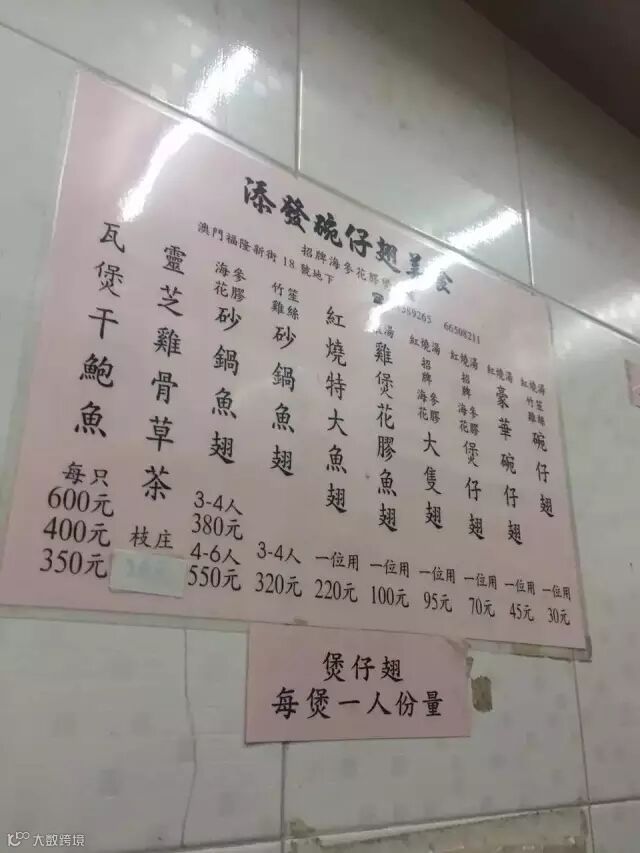 添發碗仔翅美食
招牌海參花膠
澳門福隆新街18號地下
☎ 389265 66508211
紅燒湯竹笙雞絲碗仔翅 一位用 30元
紅燒湯豪華碗仔翅 一位用 45元
紅燒湯招牌海參花膠煲仔翅 一位用 70元
紅燒湯招牌海參花膠大隻翅 一位用 95元
湯雞煲花膠魚翅 一位用 100元
紅燒特大魚翅 一位用 220元
竹笙雞絲砂鍋魚翅 3-4人 320元
海參花膠砂鍋魚翅 3-4人 380元 4-6人 550元
靈芝雞骨草茶 枝庄
瓦煲干鮑魚 每只 600元 400元 350元
煲仔翅
每煲一人份量
大数跨境